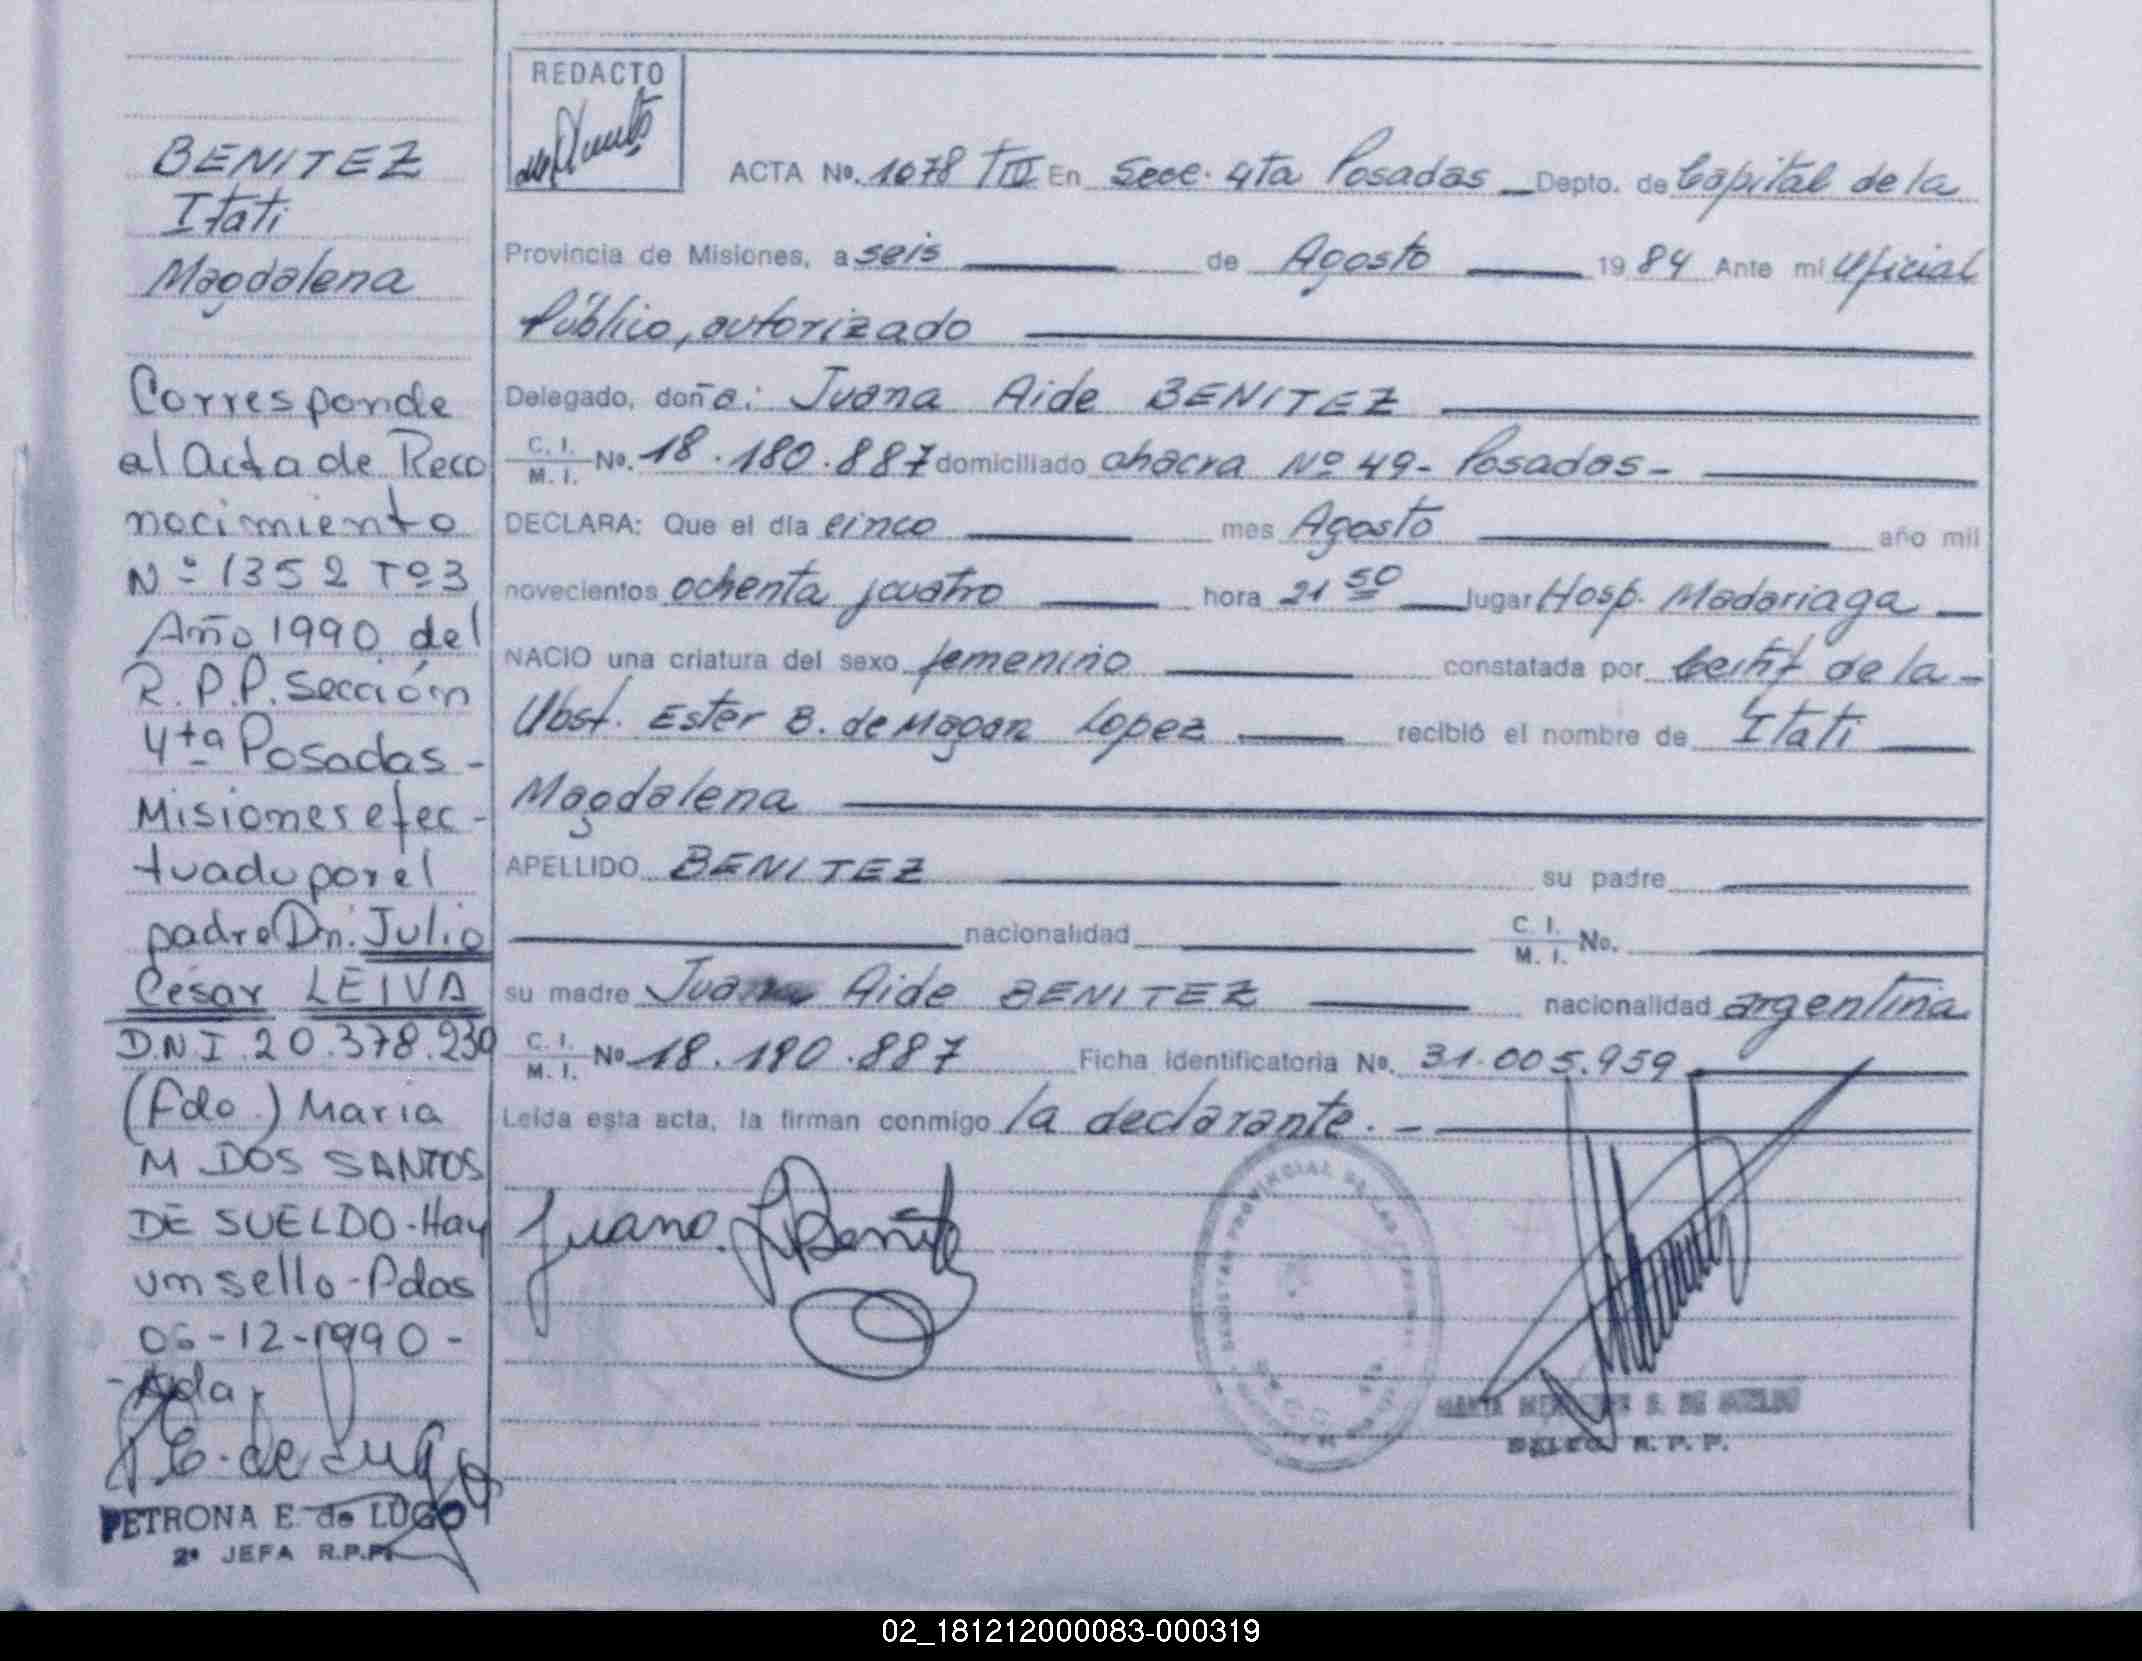 BENITEZ
Itati
Magdalena
Corresponde
al Acta de Reco
nocimiento
Nº 1352 Tº3
Año 1990 del
R.P.P. Sección
4ta Posadas-
Misiones efec-
tuadu por el
padre Dn. Julio
César LEIVA
D.N.I. 20.378.930
(Fdo.) Maria
M DOS SANTOS
DE SUELDO-Hay
un sello-Pdas
06-12-1990-
E. de Lugo
PETRONA E. de LUGO
2ª JEFA R.P.P.
REDACTO
ACTA No. 1078 TIII En Secc. 4ta Posadas Depto. de Capital de la
Provincia de Misiones, a seis de Agosto 1984 Ante mi Oficial
Público, autorizado
Delegado, doña: Juana Aide BENITEZ
C. I.
M. I. No. 18.180.887 domiciliado chacra Nº 49- Posadas-
DECLARA: Que el día cinco mes Agosto año mil
novecientos ochenta y cuatro hora 21 50 lugar Hosp. Madariaga
NACIO una criatura del sexo femenino constatada por Certif de la-
Obst. Ester B. de Magan Lopez recibió el nombre de Itati
Magdalena
APELLIDO BENITEZ su padre
nacionalidad C. I.
M. I. No.
su madre Juana Aide BENITEZ nacionalidad argentina
C. I.
M. I. No 18.180.887 Ficha identificatoria No. 31.005.959
Leída esta acta, la firman conmigo la declarante.-
Juana. Benitez
S. DE SUELDO
DELEG. R. P. P.
02_181212000083-000319